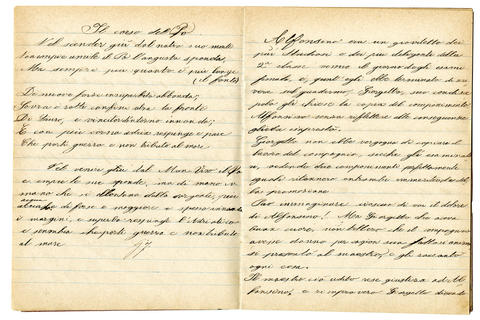 Il corso del Po
Nel scender giù dal natio suo monte
non empie umile il Po l'angusta sponda,
Ma sempre più quanto è più lunge
il fonte
Di nuove forze insuperbito abbonda;
Sovra i rotti confini alza la fronte
Di tauro, e vincitor intorno inonda;
E con più corna Adria respinge e pare
Che porti guerra e non tributo al mare.
Nel venir giù dal Mon Viso il Po
e empie le sue sponde, ma di mano in
mano che si allontana dalla sorgente,
acquista di forze e
i margini, e superbo respinge l'Adriatico
e sembra che porti guerra e non tributo
al mare
Alfonsino era un giovinetto dei
più studiosi e dei più diligenti della
2ª classe. venne il giorno degli esami
finali, e, quand'egli ebbe terminato il la-
voro sul quaderno, Giorgetto, suo condisce-
polo gli chiese la copia del componimento.
Alfonsino senza riflettere alle conseguenze
gliela imprestò.
Giorgetto non ebbe vergogna di copiare il
lavoro del compagno, sicchè gli esaminato-
ri, vedendo due componimenti perfettamente
uguali ritennero entrambi immeritevoli del-
la promozione.
Può immaginarsi ciascun di voi il dolore
di Alfonsino! Ma Giorgetto che aveva
buon cuore, non tollerò che il compagno
avesse danno per cagion sua
si presentò al maestro, e gli raccontò
ogni cosa.
Il maestro ciò udito rese giustizia ad Al-
fonsino, e si rimproverò Giorgetto dicendo